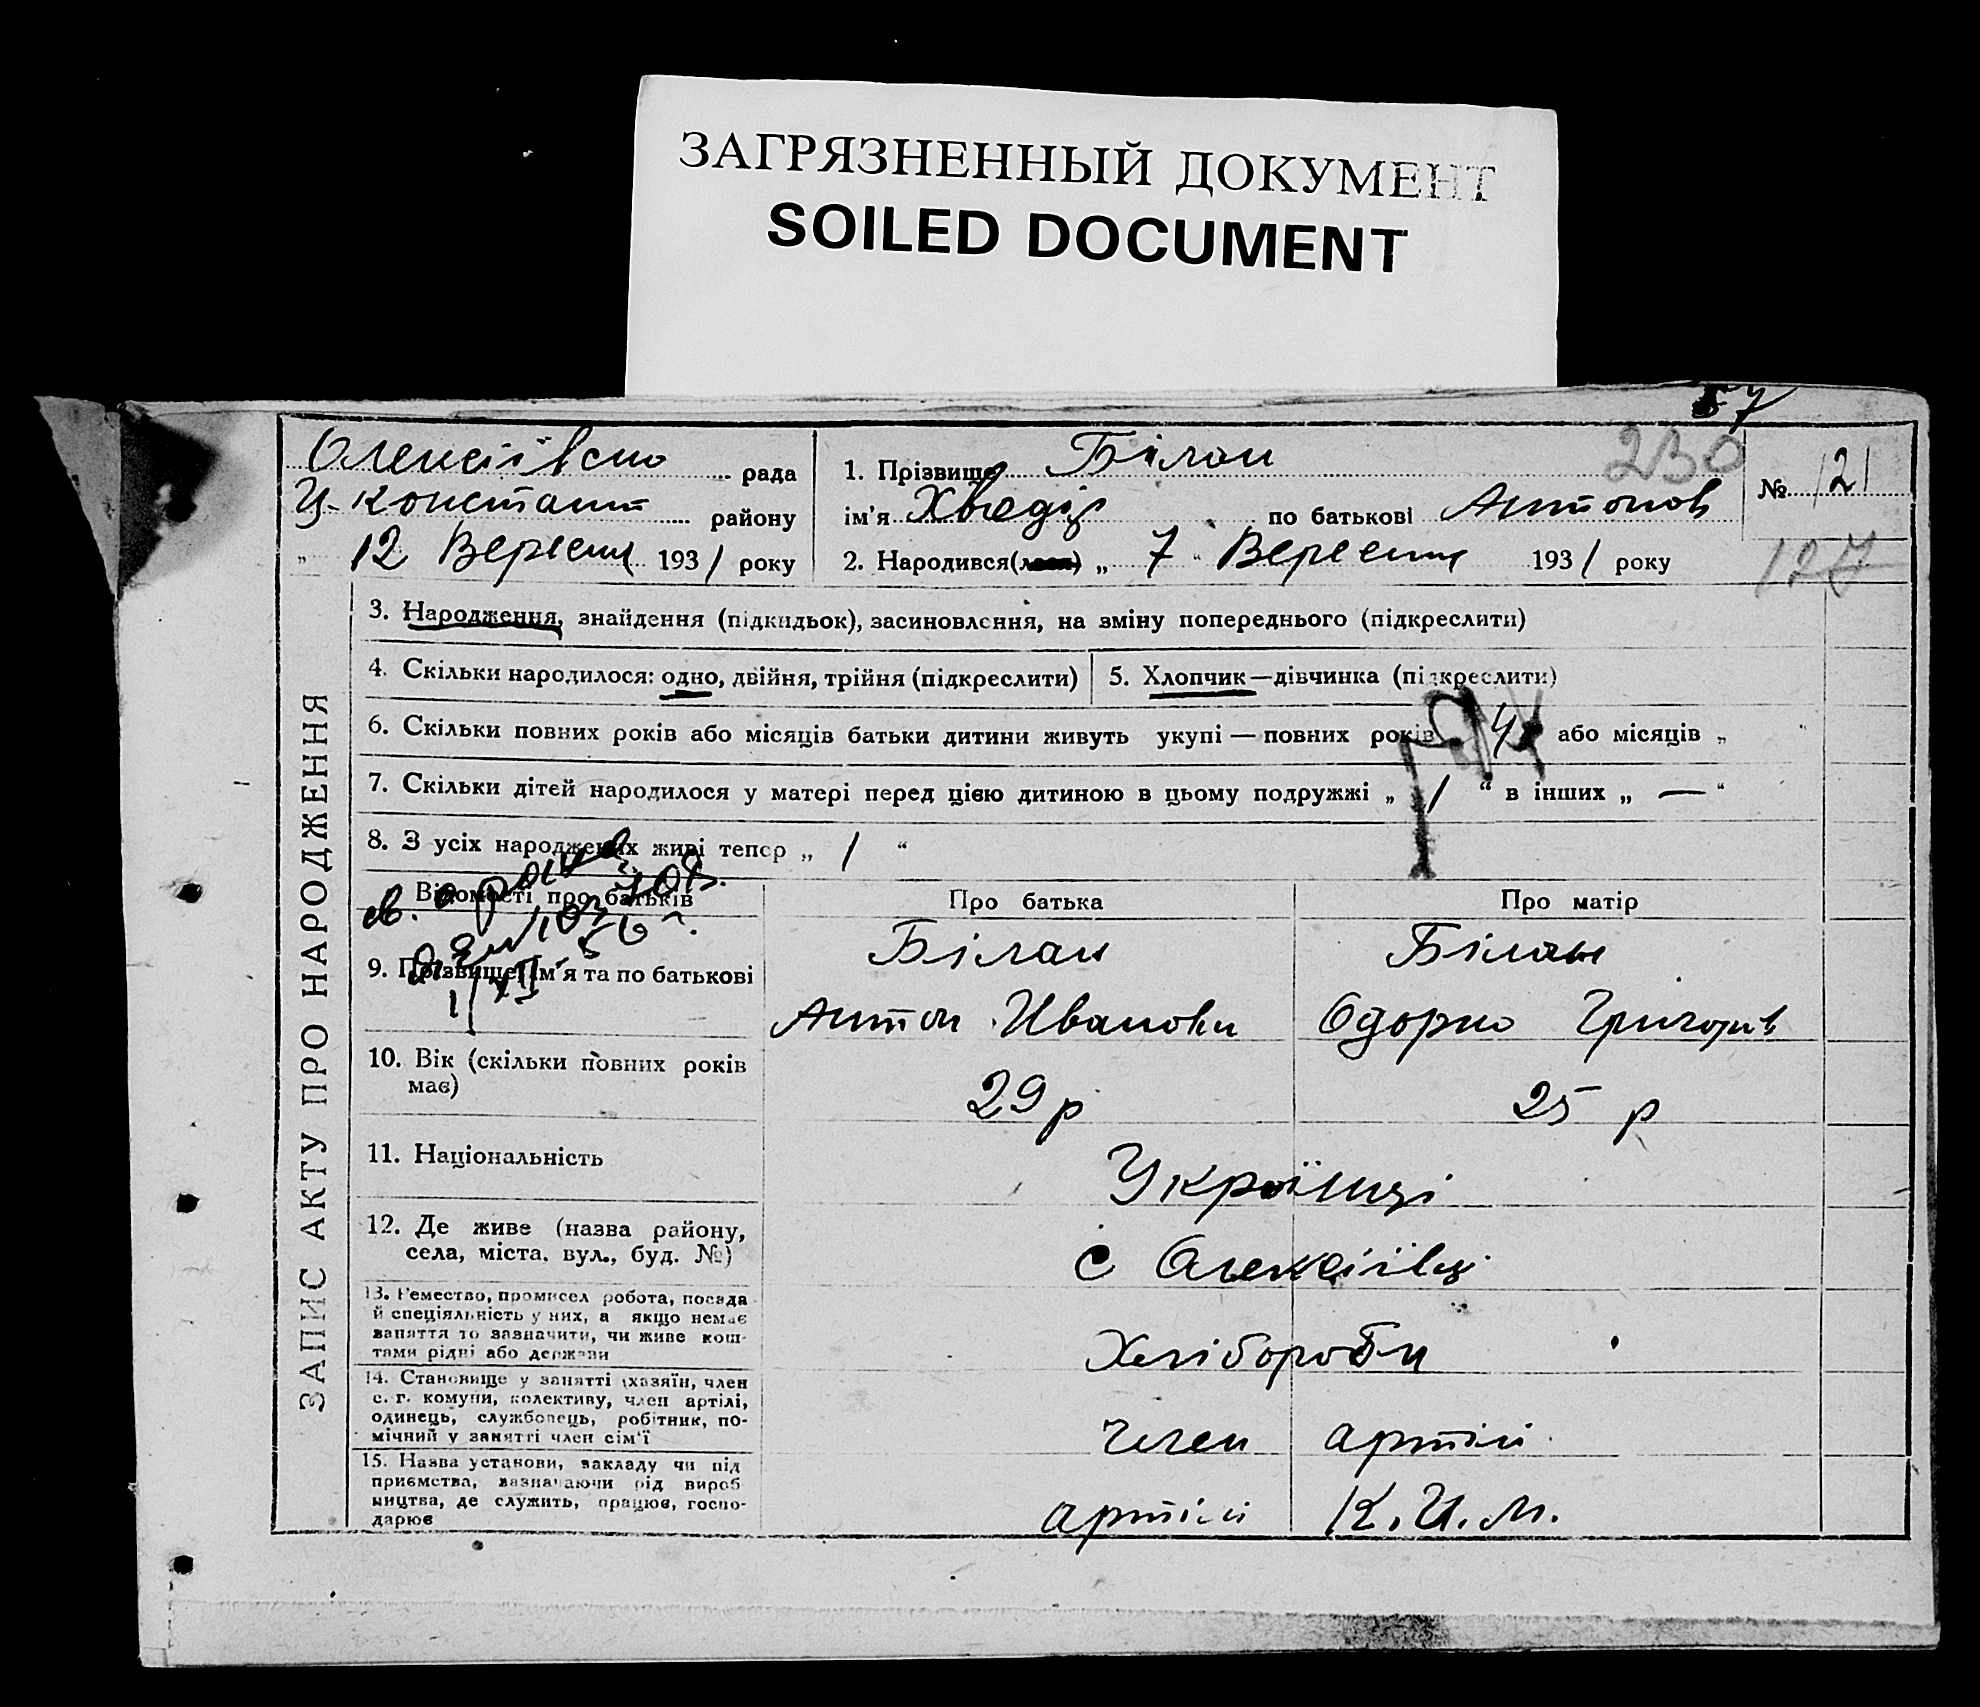 ЗАГРЯЗНЕННЫЙ ДОКУМЕНТ
SOILED DOCUMENT
57
230
Олексіївсько рада
Ц-Констант району
„ 12 Вересня 1931 року
1. Прізвище Білан
ім'я Хведір по батькові Антонов
2. Народився „ 7 " Вересня 1931 року
№ 121
127
ЗАПИС АКТУ ПРО НАРОДЖЕННЯ
3. Народження, знайдення (підкидьок), засиновлєння, на зміну попереднього (підкреслити)
4. Скільки народилося: одно, двійня, трійня (підкреслити)
5. Хлопчик—дівчинка (підкреслити)
6. Скільки повних років або місяців батьки дитини живуть укупі — повних років 4 або місяців „ "
7. Скільки дітей народилося у матері перед цією дитиною в цьому подружжі „ 1 " в інших „ — "
8. З усіх народжених живі тепер „ 1 "
Відомості про батьків
Про батька
Про матір
9. Прізвище, ім'я та по батькові
Білан
Антон Иванови
Білан
Одорко Григорів
10. Вік (скільки повних років
має)
29 р
25 р
11. Національність
Українці
12. Де живе (назва району,
села, міста. вул., буд. №)
с Олексіївці
13. Ремество, промисел робота, посада
й спеціяльність у них, а якщо немає
заняття то зазначити, чи живе кош-
тами рідні або держави
Хлібороби
14. Становище у занятті (хазяїн, член
с. г. комуни, колективу, член артілі,
одинець, службовець, робітник, по-
мічний у занятті член сім'ї
член артілі
15. Назва установи, закладу чи під
приємства, зазначаючи рід вироб
ництва, де служить, працює, госпо-
дарює
артілі К.И.М.